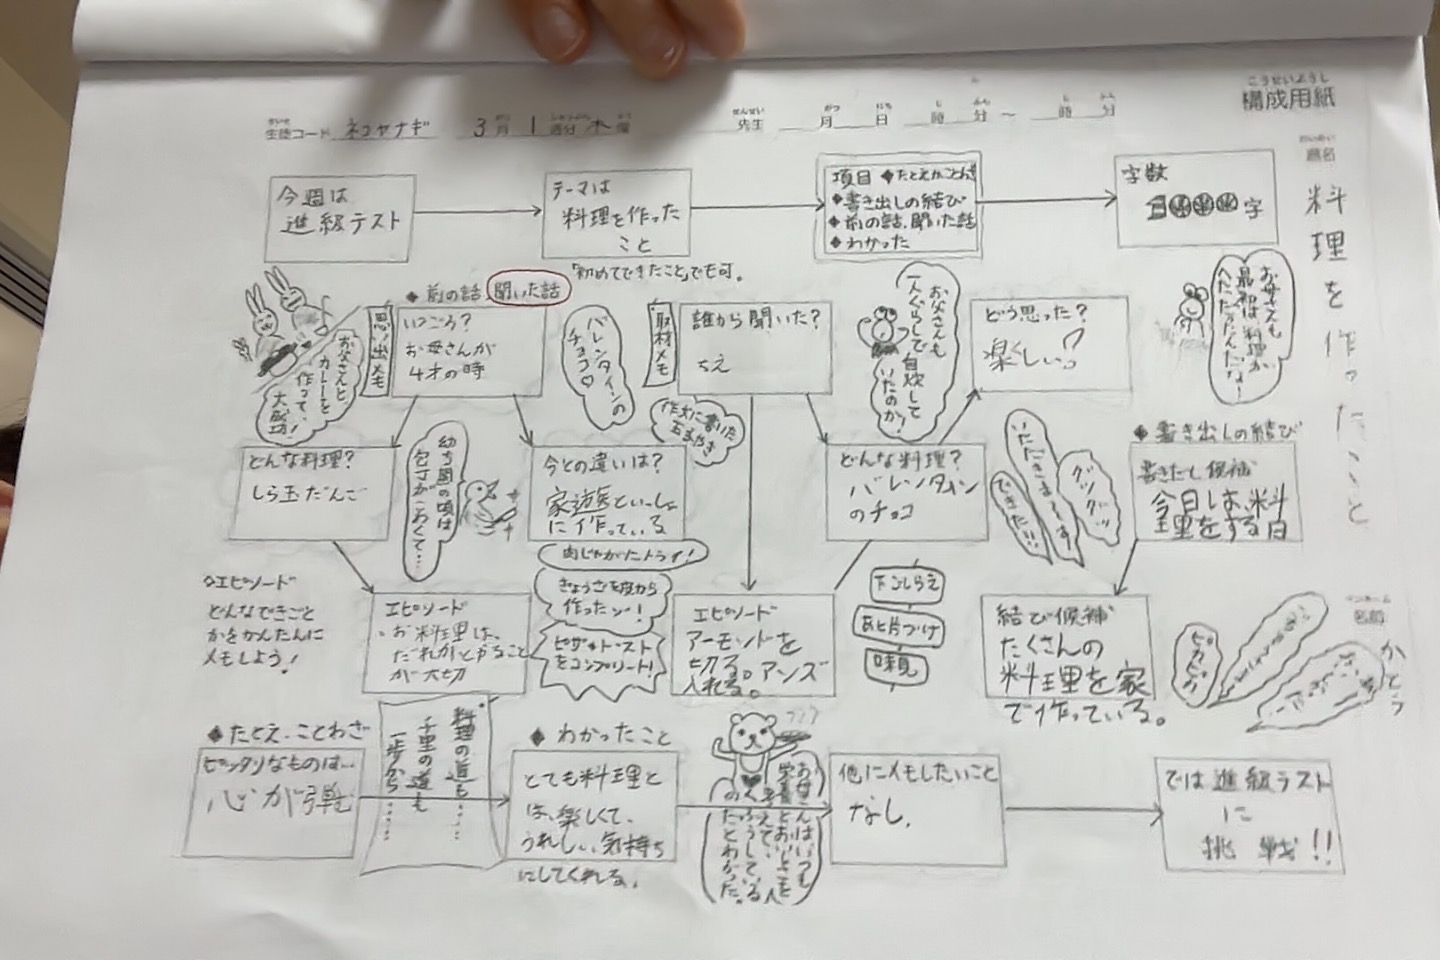 構成用紙
生徒コード ネコヤナギ 3月1週分木曜
先生 月 日 時 分 〜 時 分
題名
料理を作ったこと
今週は
進級テスト
テーマは
料理を作った
こと
「初めてできたこと」でも可。
項目 ◆たとえかことわざ
◆書き出しの結び
◆前の話、聞いた話
◆わかった
字数
字
◆前の話 聞いた話
思い出メモ
お父さんと、
カレーを
作って、
大成功!
いつごろ?
お母さんが
4才の時
バレンタインの
チョコ♡
取材メモ
誰から聞いた?
ちえ
お父さんも
一人ぐらしで
自炊して
いたのか!
どう思った?
楽しいっ
お母さんも
最初は料理が
へただったんだな〜
どんな料理?
しら玉だんご
幼ち園の頃は
包丁がこわくて…
今との違いは?
に作っている
作文に書いた
どんな料理?
バレンタイン
のチョコ
いただきまーす!
グツグツ
できた…
◆書き出しの結び
書きだし候補
今日は、料
理をする日
◇エピソード
どんなできごと
かをかんたんに
メモしよう!
エピソード
お料理は、
だれかとやること
が大切
肉じゃがにトライ!
きょうざを皮から
作ったゾー!
ピザトースト
をコンプリート!
エピソード
アーモンドを
切る。アンズ
入れる。
下ごしらえ
あと片づけ
味見
結び候補
たくさんの
料理を家
で作っている。
ピカピカ
名前
かとう
◆たとえ・ことわざ
ピッタリなものは…
心が弾む
料理の道も……
千里の道も
一歩から……
◆わかったこと
とても料理と
は、楽しくて、
うれしい、気持ち
にしてくれる。
お母さんはいつも
栄養とおいしさを
考えて、
くふうしている人
だとわかった。
他にメモしたいこと
なし.
では進級テスト
に
挑戦!!